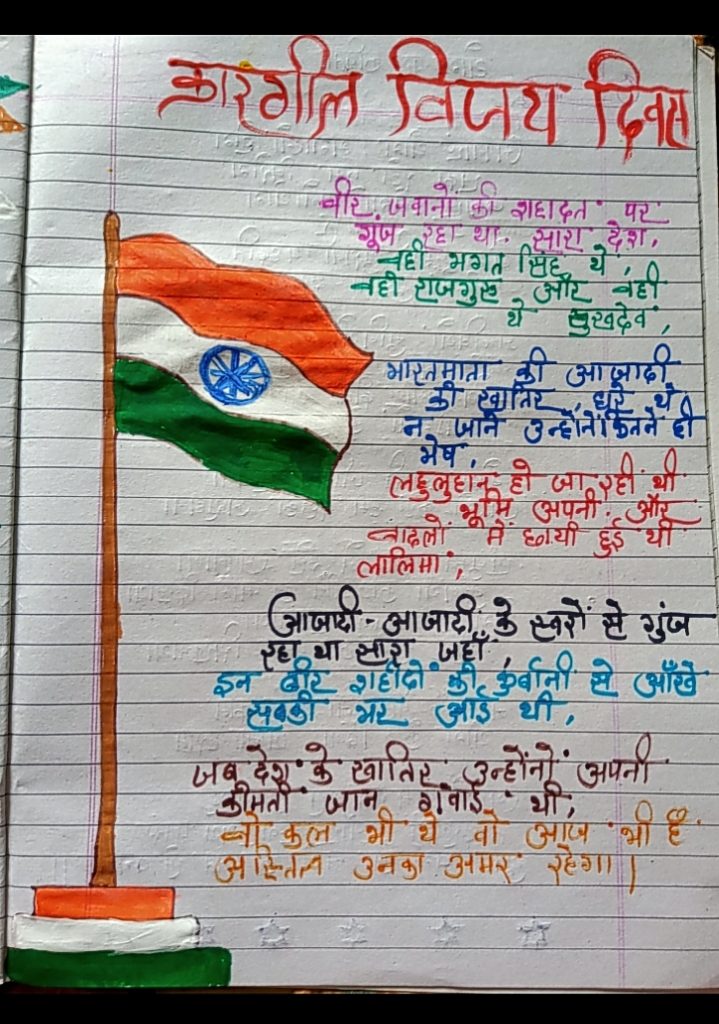 कारगील विजय दिवस
वीर जवानों की शहादत पर
गूंज रहा था सारा देश,
वही भगत सिंह थे,
वही राजगुरु और वही
थे सुखदेव,
भारतमाता की आजादी
की खातिर धरे थे
न जाने उन्होंने कितने ही
भेष,
लहुलुहान हो जा रही थी
भूमि अपनी और
बादलों में छायी हुई थी
लालिमा,
आजादी-आजादी के स्वरों से गुंज
रहा था सारा जहाँ,
इन वीर शहीदों की कुर्बानी से आँखे
सबकी भर आई थी,
जब देश के खातिर उन्होंनो अपनी
कीमती जान गंवाई थी,
वो कल भी थे वो आज भी है
अस्तित्व उनका अमर रहेगा।